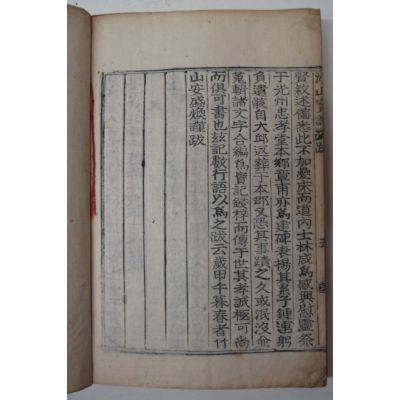 賢敍述備悉此不加疊床而道內士林咸爲感興慰靈祭
于光州忠孝堂本鄕章甫亦爲建碑表揚其系子鍾運躬
負遺骸自大邱返葬于本鄕又恐其事蹟之久或泯沒
蒐輯諸文字合編爲實記鋟梓而傳于世其孝誠極可尙
而俱可書也玆記數行語以爲之跋云歲甲午暮春者竹
山安盛煥謹跋